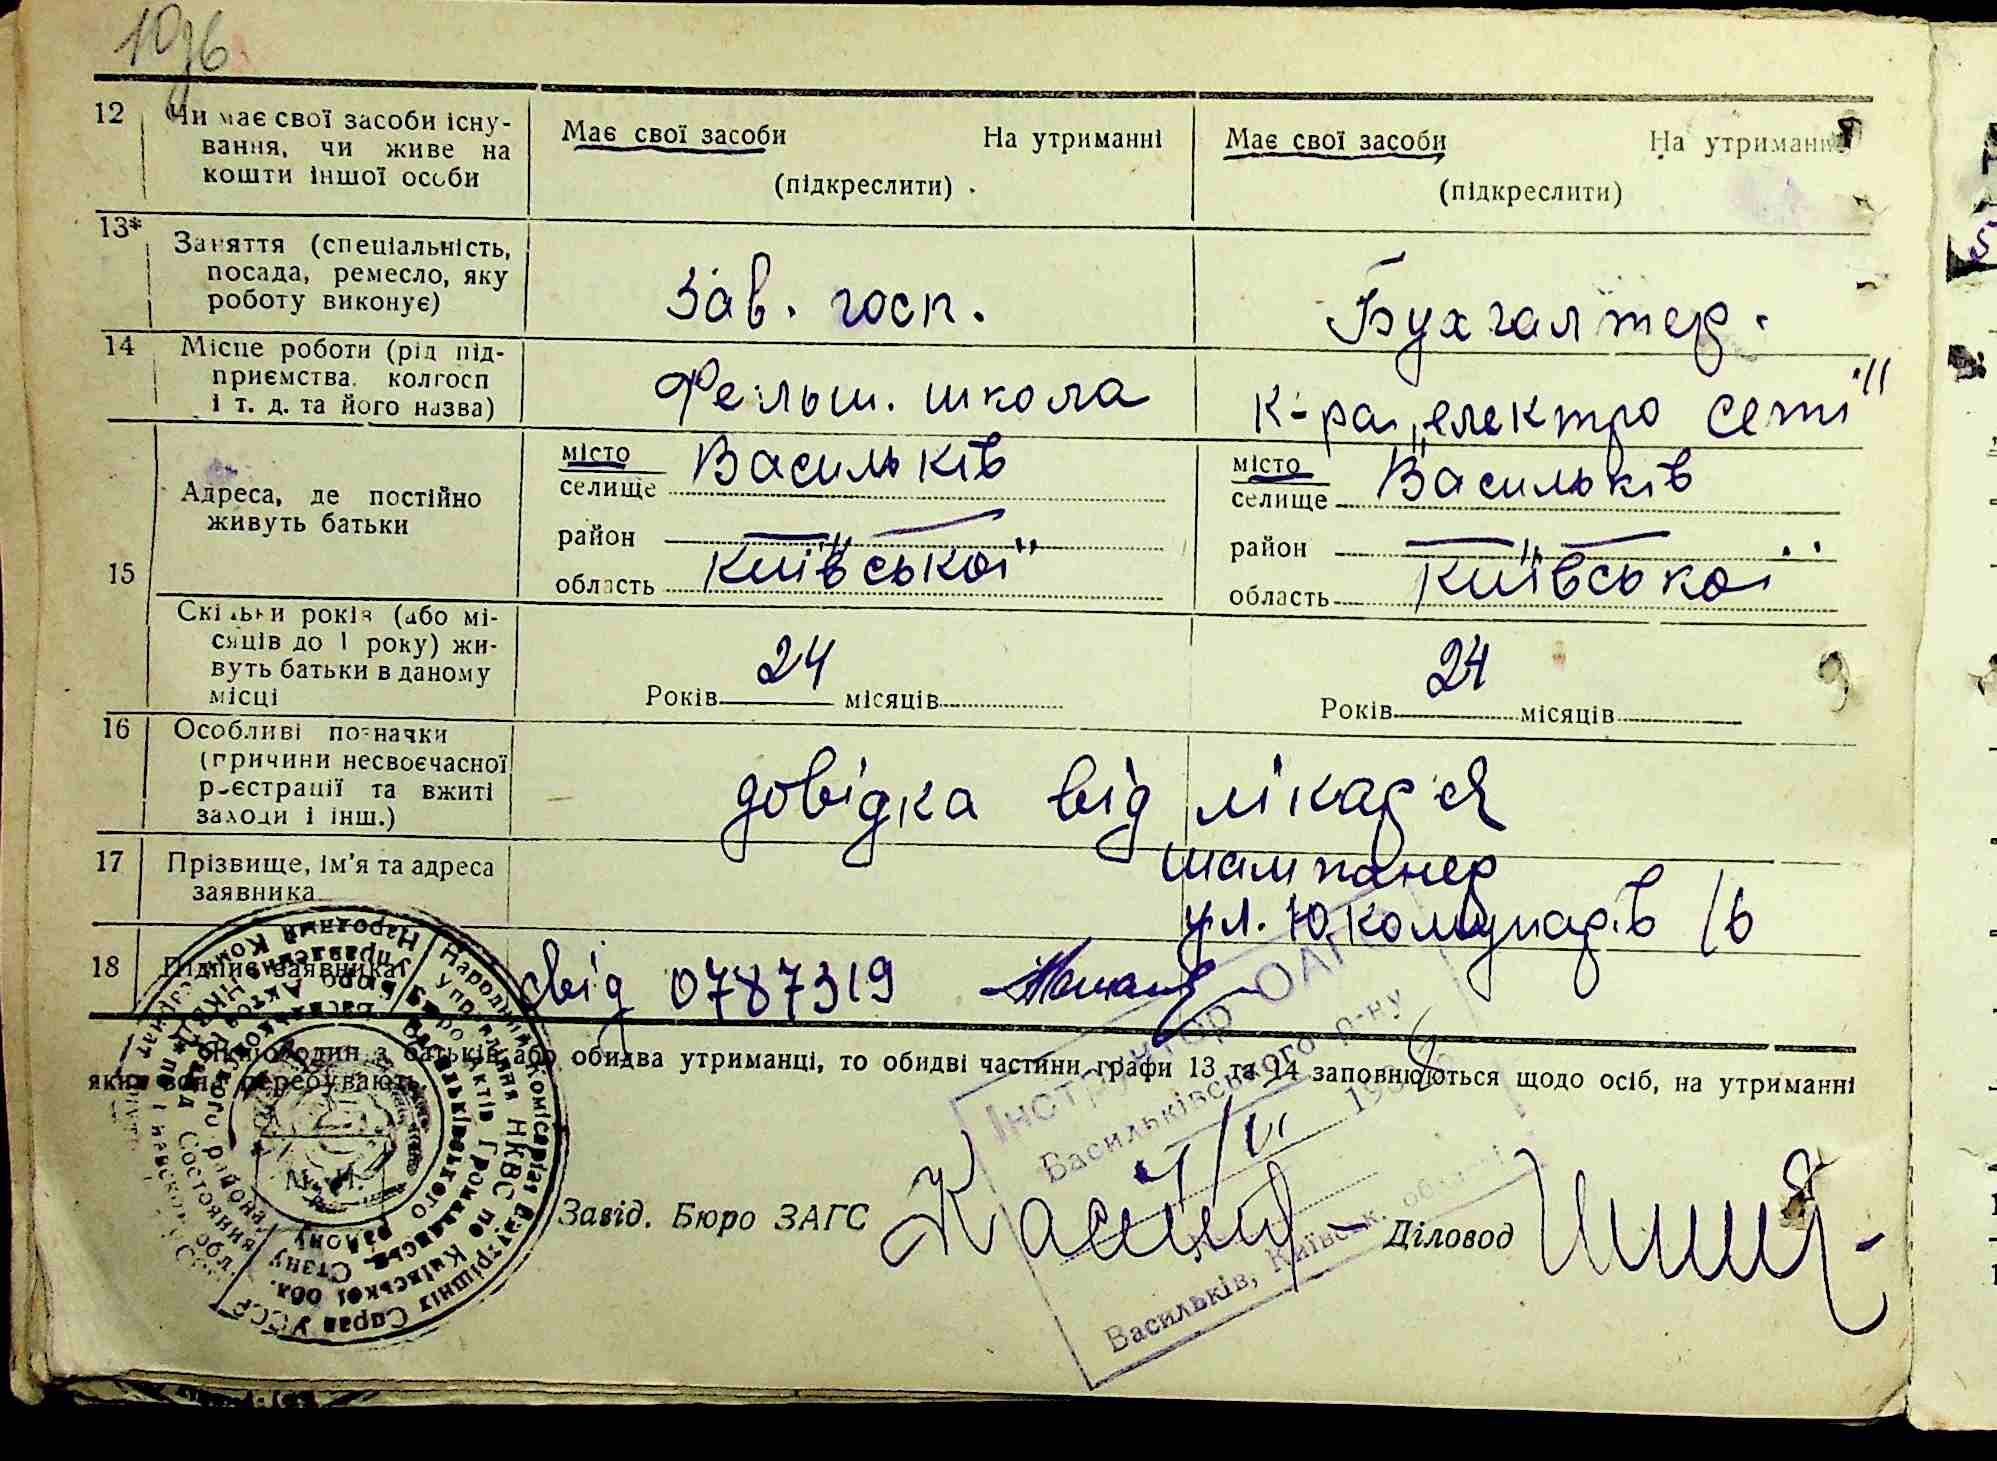 12 Чи має свої засоби існу-
вання, чи живе на
кошти іншої особи
Має свої засоби На утриманні
(підкреслити)
Має свої засоби На утриманні
(підкреслити)
13* Заняття (спеціальність,
посада, ремесло, яку
роботу виконує)
Зав. госп.
Бухгалтер.
14 Місце роботи (рід під-
приємства, колгосп
і т. д. та його назва)
Фельш. школа
к-ра „електро сеті"
15 Адреса, де постійно
живуть батьки
місто Васильків
селище
район
область Київської
місто Васильків
селище
район
область Київської
Скільки років (або мі-
сяців до 1 року) жи-
вуть батьки в даному
місці
Років 24 місяців
Років 24 місяців
16 Особливі позначки
(причини несвоєчасної
реєстрації та вжиті
заходи і інш.)
довідка від лікар'я
17 Прізвище, ім'я та адреса
заявника
шампанер
ул. Ю комунарів
18 Підпис заявника
свід 0787319
Якщо один з батьків або обидва утриманці, то обидві частини графи 13 та 14 заповнюються щодо осіб, на утриманні
яких вони перебувають.
Інструктор ОАГС
Васильківського р-ну
Васильків, Київськ. області
М. П.
Завід. Бюро ЗАГС
Діловод